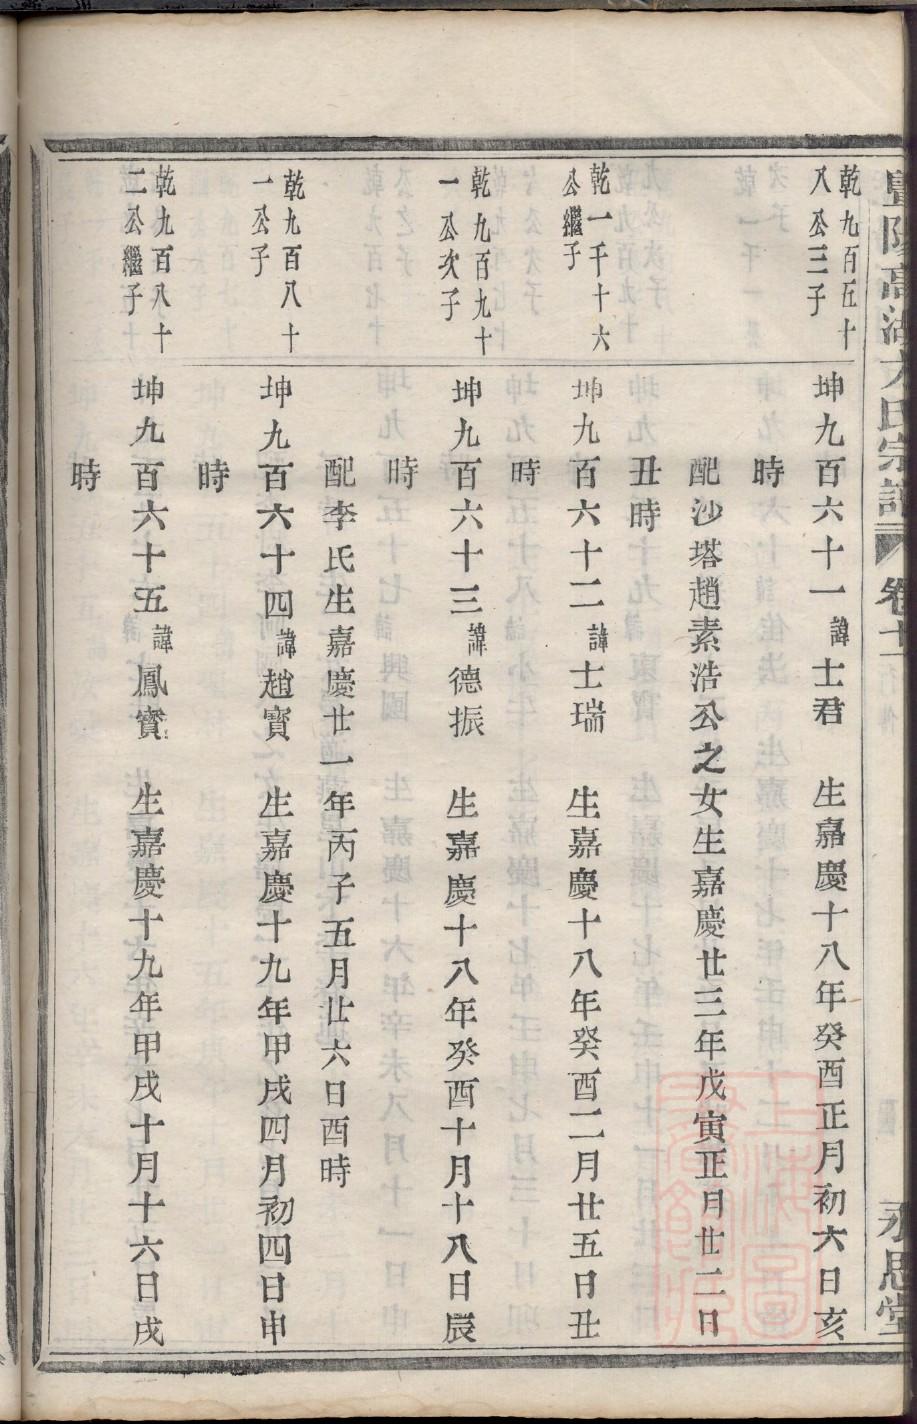 暨陽高湖方氏宗譜 卷十 永思堂
乾九百五十
八公三子
坤九百六十一諱士君 生嘉慶十八年癸酉正月初六日亥
時
配沙塔趙素浩公之女生嘉慶廿三年戊寅正月廿二日
丑時
乾一千十六
公繼子
坤九百六十二諱士瑞 生嘉慶十八年癸酉二月廿五日丑
時
乾九百九十
一公次子
坤九百六十三諱德振 生嘉慶十八年癸酉十月十八日辰
時
配李氏生嘉慶廿一年丙子五月廿六日酉時
乾九百八十
一公子
坤九百六十四諱趙寳 生嘉慶十九年甲戌四月初四日申
時
乾九百八十
二公繼子
坤九百六十五諱鳳寳 生嘉慶十九年甲戌十月十六日戌
時